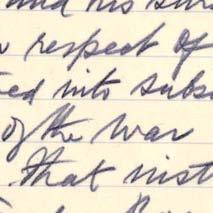 and his
respect of
into subs
of the war
that inst